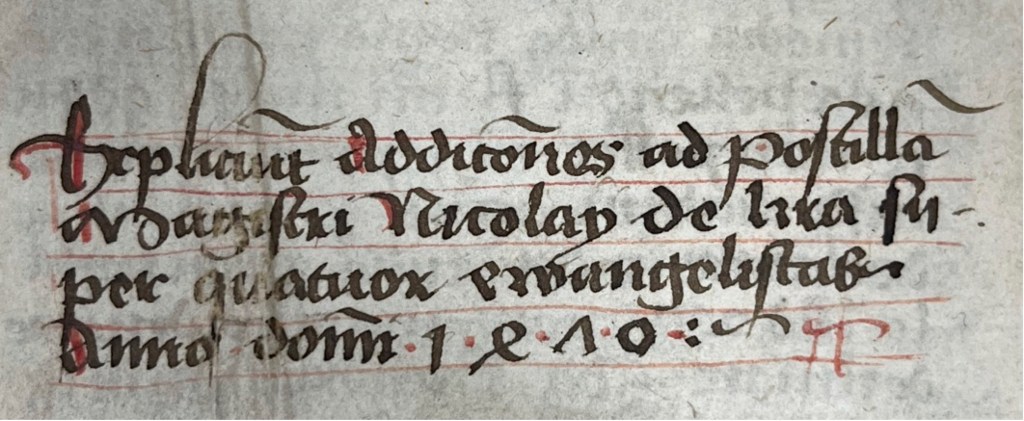 Expliciūt Addicōnes ad Postillā
Magistri Nicolay de lira su-
per quatuor ewangelistas
Anno domī · 1 · 4 · 7 · 0 ·